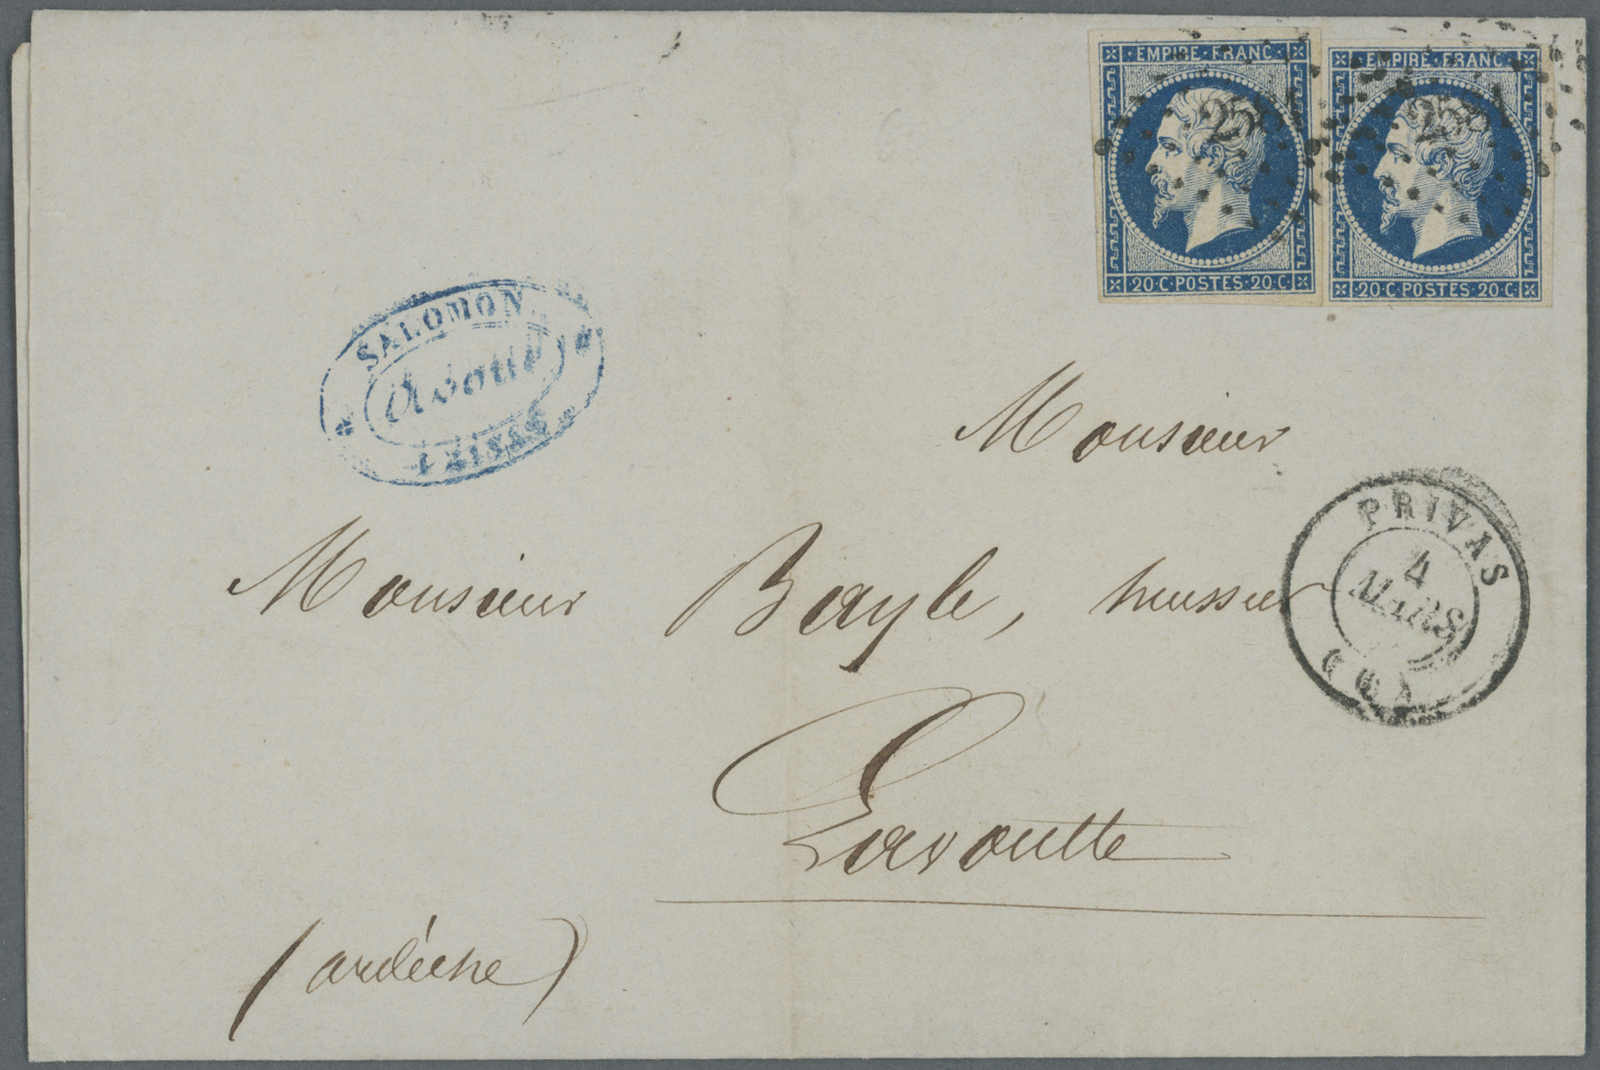 EMPIRE·FRANC· EMPIRE·FRANC·
25 25
20·C·POSTES·20·C· 20·C·POSTES·20·C·
SALOMON
Avoué
Monsieur
Monsieur Bayle, huissier
PRIVAS
4
MARS
Lavoulte
(ardèche)